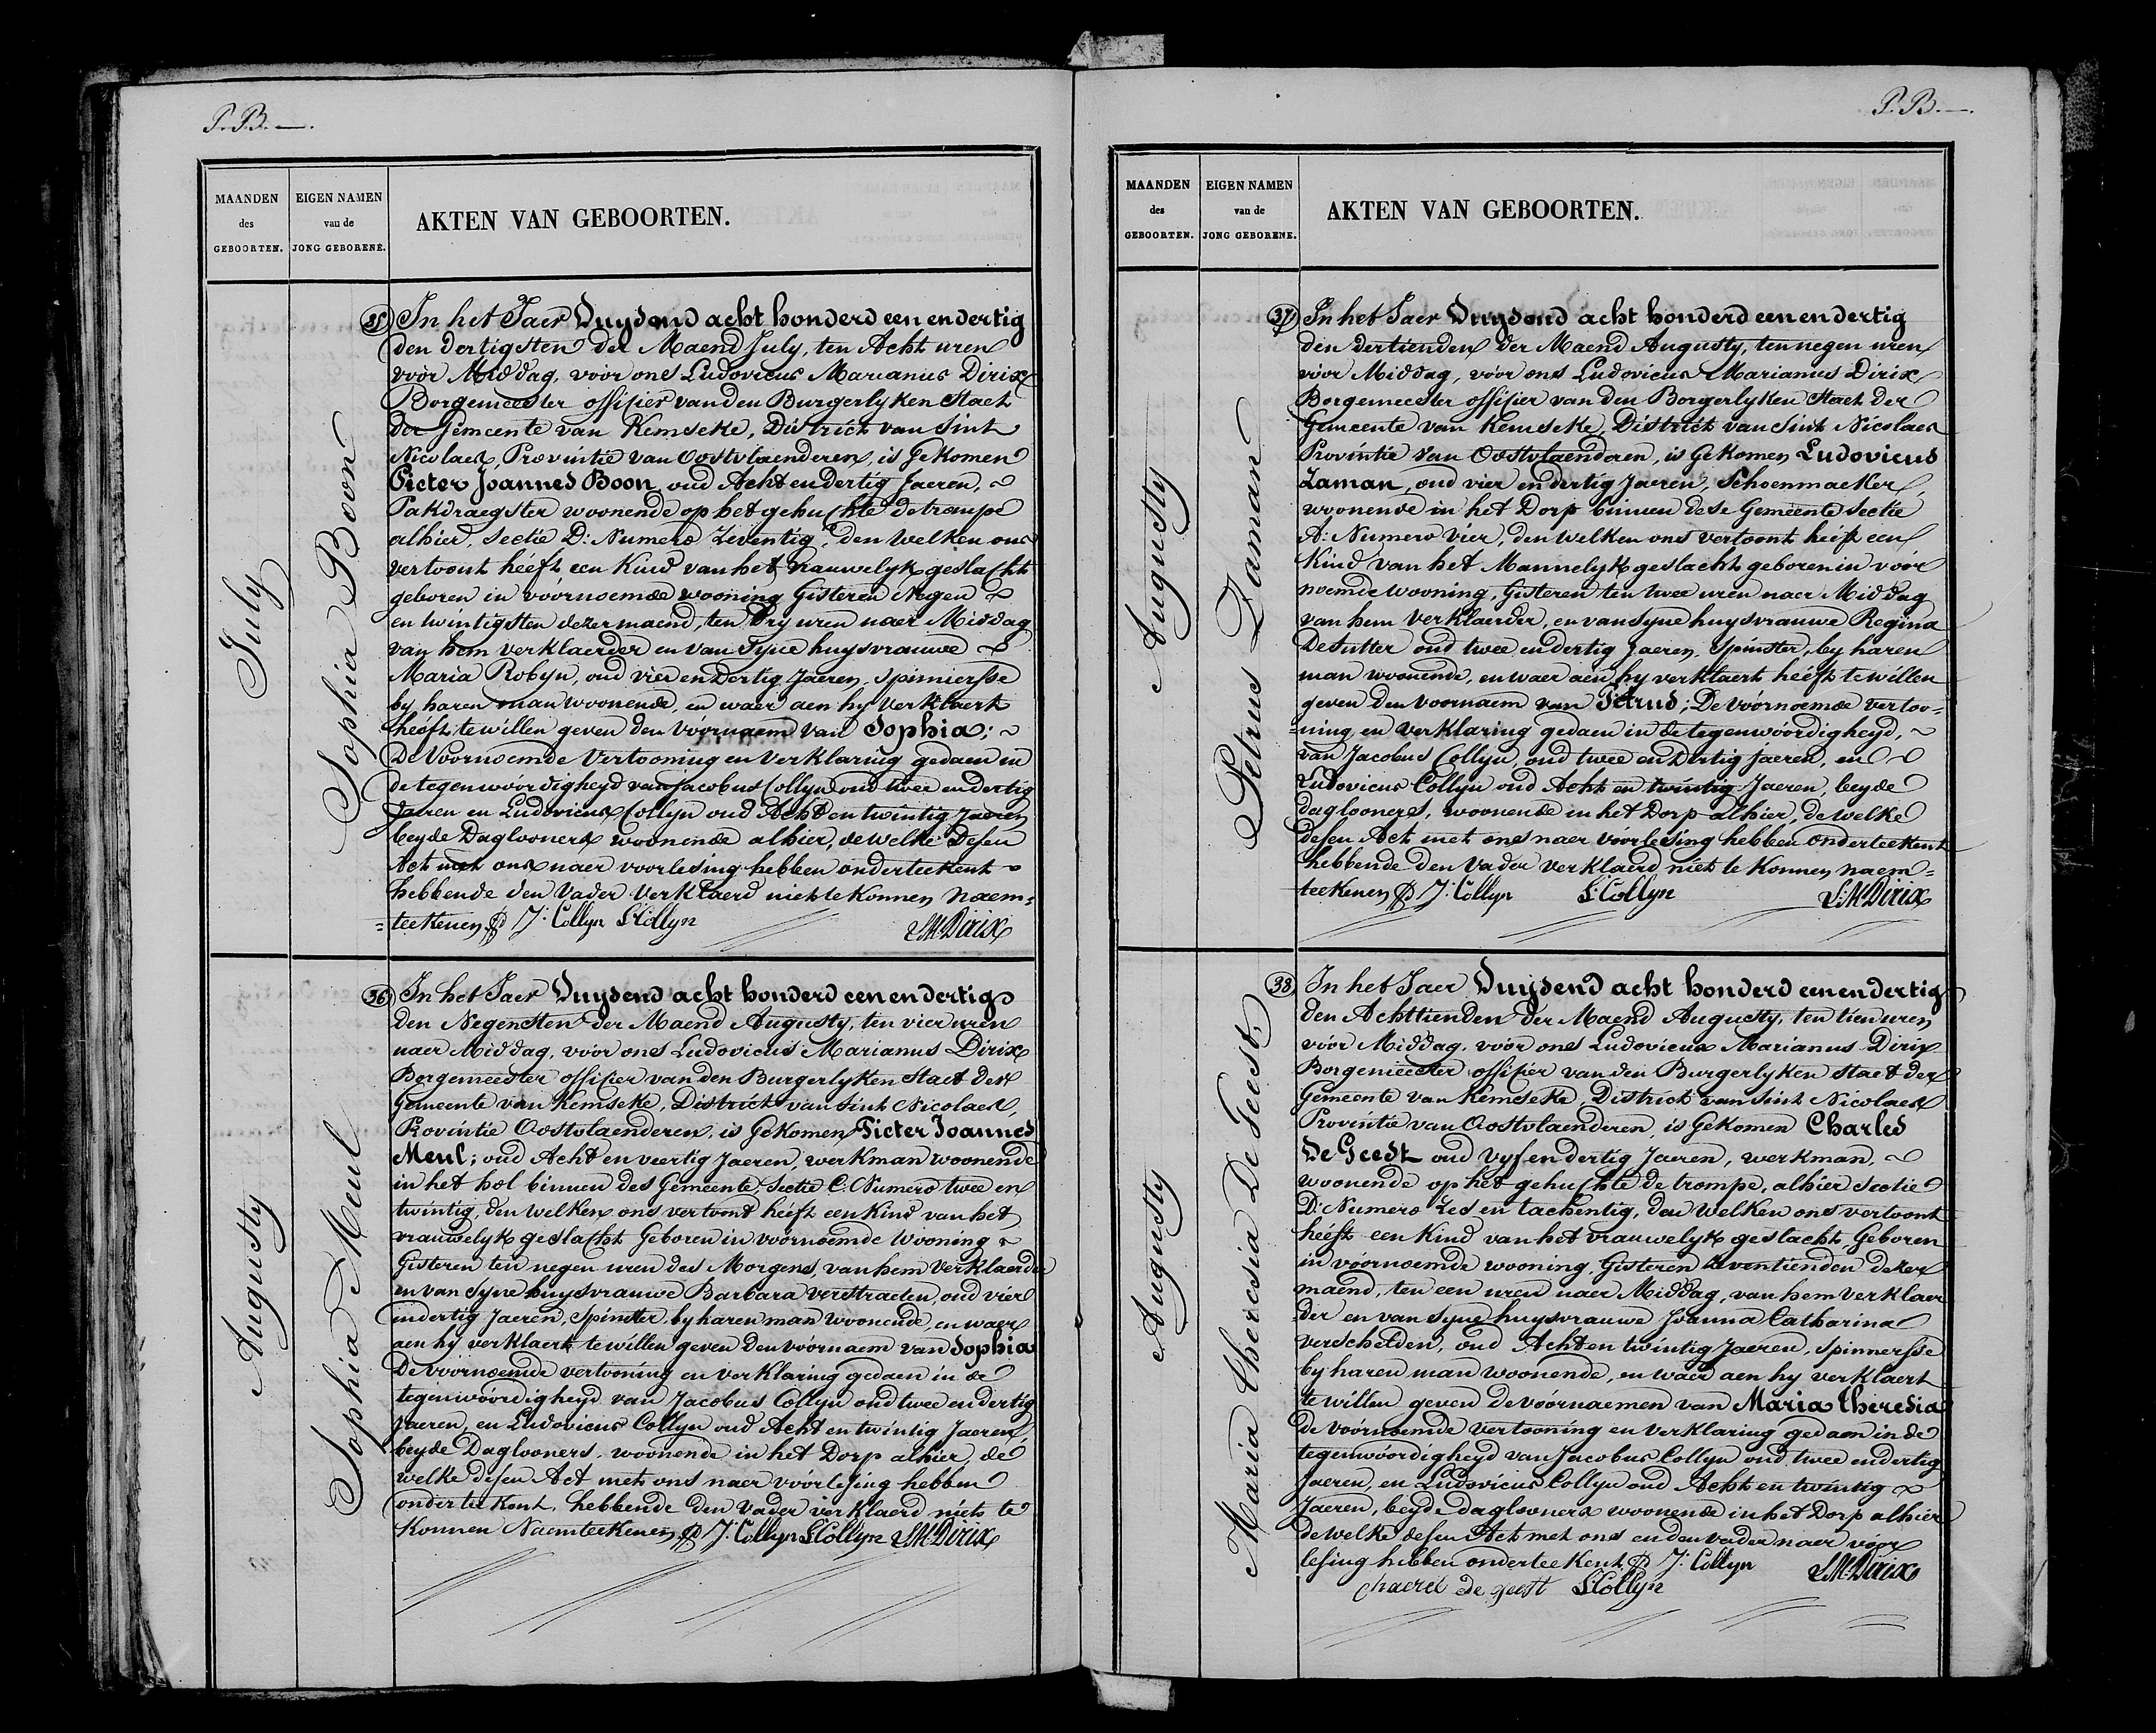 P.B.—.
MAANDEN
des
GEBOORTEN.
EIGEN NAMEN
van de
JONG GEBORENE.
AKTEN VAN GEBOORTEN.
July
Sophia Boon
35 In het Jaer Duysend acht honderd een en dertig
den dertigsten der Maend July, ten Acht uren
voor Middag, voor ons Ludovicus Marianus Dirix
Borgemeester offisier van den Burgerlyken Staet
der Gemeente van Kemseke, District van Sint
Nicolaes, Provintie van Oostvlaenderen, is Gekomen
Pieter Joannes Boon, oud Acht en dertig Jaeren,
Pakdraegster woonende op het gehuchte de trompe
alhier, Sectie D: Numero Zeventig, den welken ons
vertoont heeft een Kind van het vrauwelyk geslacht
geboren in voornoemde wooning Gisteren Negen
en twintigsten dezer maend, ten Dry uren naer Middag
van hem verklaerder en van Syne huysvrauwe
Maria Robyn, oud vier en Dertig Jaeren, Spinnersse
by haren man woonende, en waer aen hy Verklaert
heeft te willen geven den vóórnaem van Sophia;
De Voornoemde Vertooning en Verklaring gedaen in
de tegenwóórdigheyd van Jacobus Collyn oud twee en dertig
Jaeren en Ludovicus Collyn oud Acht en twintig Jaeren
beyde Daglooners woonende alhier, de welke Desen
Act met ons naer voorlesing hebben onderteekent
hebbende den Vader Verklaerd niet te Konnen Naem=
=teekenen J: Collyn L Collyn LM Dirix
Augusty
Sophia Meul
36 In het Jaer Duysend acht honderd een en dertig
den Negensten der Maend Augusty, ten vier uren
naer Middag, vóór ons Ludovicus Marianus Dirix
Borgemeester offisier van den Burgerlyken Staet der
Gemeente van Kemseke, District van Sint Nicolaes,
Provintie Oostvlaenderen, is Gekomen Pieter Joannes
Meul; oud Acht en veertig Jaeren, werkman woonende
in het hol binnen des Gemeente, Sectie C: Numero twee en
twintig, den Welken ons vertoont heeft een Kind van het
vrauwelyk geslacht Geboren in vóórnoemde Wooning
Gisteren ten negen uren des Morgens, van hem Verklaerder
en van Syne huysvrauwe Barbara Verstraeten, oud vier
en dertig Jaeren, Spinster, by haren man woonende, en waer
aen hy verklaert te willen geven den vóórnaem van Sophia
De voornoemde vertooning en verklaring gedaen in de
tegenwóórdigheyd van Jacobus Collyn oud twee en dertig
Jaeren, en Ludovicus Collyn oud Acht en twintig Jaeren,
beyde Daglooners, woonende in het Dorp alhier, de
welke desen Act met ons naer vóórlesing hebben
onderteekent, hebbende den Vader verklaerd niet te
Konnen Naemteekenen J: Collyn L Collyn LM Dirix
P.B.—.
MAANDEN
des
GEBOORTEN.
EIGEN NAMEN
van de
JONG GEBORENE.
AKTEN VAN GEBOORTEN.
Augusty
Petrus Zaman
37 In het Jaer Duysend acht honderd een en dertig
den dertienden der Maend Augusty, ten negen uren
vóór Middag, vóór ons Ludovicus Marianus Dirix
Borgemeester offisier van den Borgerlyken Staet der
Gemeente van Kemseke, District van Sint Nicolaes
Provintie van Oostvlaenderen, is Gekomen Ludovicus
Zaman, oud vier en dertig Jaeren, Schoenmaeker,
woonende in het Dorp binnen dese Gemeente Sectie
A: Numero Vier, den welken ons vertoont heeft een
Kind van het Mannelyk geslacht geboren in vóór
noemde wooning, Gisteren ten twee uren naer Middag
van hem Verklaerder, en van Syne huysvrauwe Regina
Desutter oud twee en dertig Jaeren, Spinster, by haren
man woonende, en waer aen hy verklaert heeft te willen
geven den voornaem van Petrus; De vóórnoemde vertoo=
=ning en verklaring gedaen in de tegenwóórdigheyd,
van Jacobus Collyn, oud twee en Dertig Jaeren, en
Ludovicus Collyn oud Acht en twintig Jaeren, beyde
daglooners, woonende in het Dorp alhier, de welke
desen Act met ons naer vóórlesing hebben onderteekent
hebbende den Vader verklaerd niet te Konnen naem=
teekenen J: Collyn L: Collyn L:M Dirix
Augusty
Maria Theresia De Geest,
38 In het Jaer Duysend acht honderd een en dertig
den Achttienden der Maend Augusty, ten tien uren
vóór Middag, vóór ons Ludovicus Marianus Dirix
Borgemeester offisier van den Burgerlyken staet der
Gemeente van Kemseke, District van Sint Nicolaes
Provintie van Oostvlaenderen, is Gekomen Charles
De Geest oud vyf en dertig Jaeren, werkman,
woonende op het gehuchte de trompe, alhier Sectie
D: Numero Zes en tachentig, den Welken ons vertoont
heeft een Kind van het vrauwelyk geslacht, Geboren
in vóórnoemde wooning, Gisteren Zeventienden dezer
maend, ten een uren naer Middag, van hem verklaer
der en van Syne huysvrauwe Joanna Catharina
Verschelden, oud Acht en twintig Jaeren, Spinnersse
by haren man woonende, en waer aen hy verklaert
te willen geven de vóórnaemen van Maria Theresia
de vóórnoemde vertooning en verklaring gedaen in de
tegenwóórdigheyd van Jacobus Collyn oud twee en dertig
Jaeren, en Ludovicus Collyn oud Acht en twintig
Jaeren, beyde daglooners woonende in het Dorp alhier
de welke desen Act met ons en den vader naer vóór
lesing hebben onderteekent J: Collyn LM Dirix
Chaerel De geest L Collyn